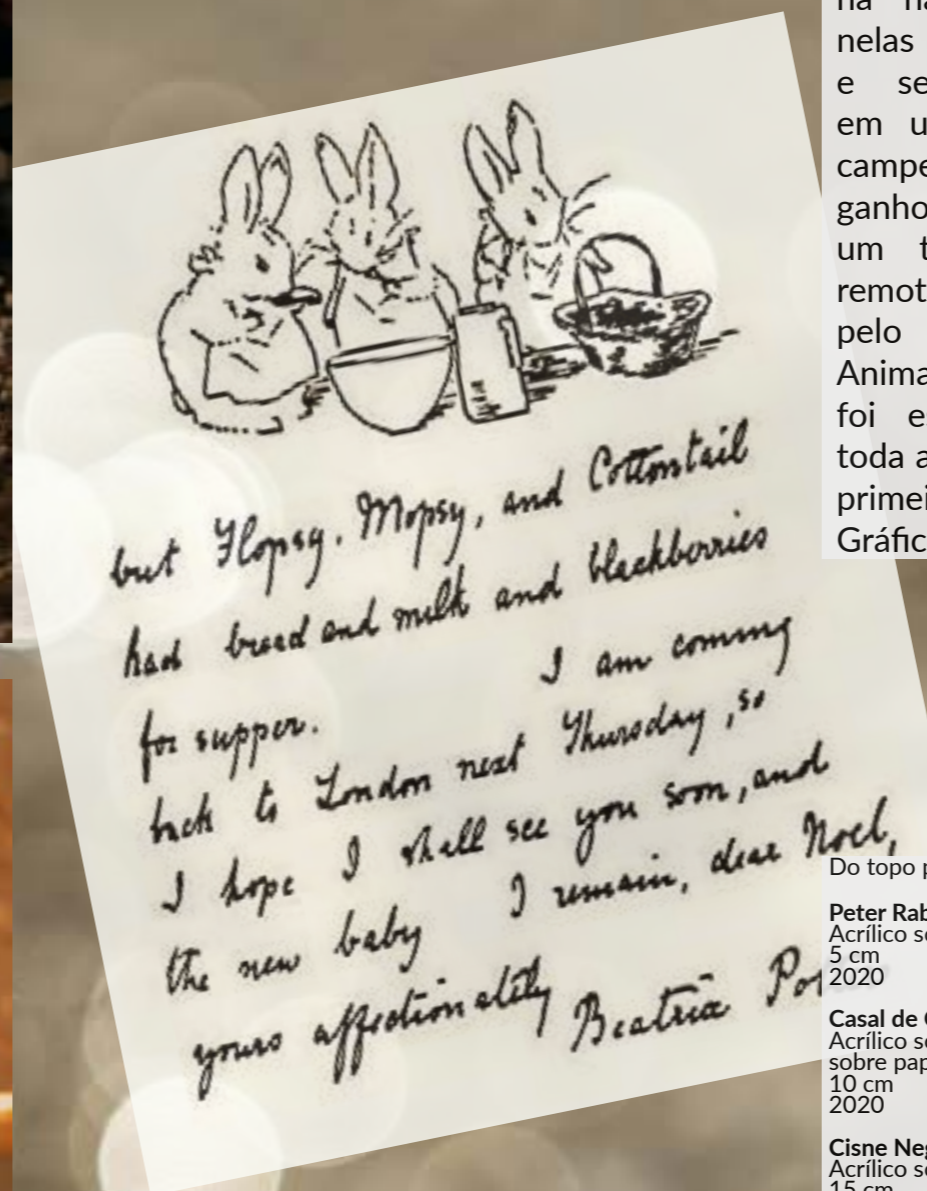 but Flopsy, Mopsy, and Cottontail
had bread and milk and blackberries
for supper. I am coming
back to London next Thursday, so
I hope I shall see you soon, and
the new baby I remain, dear Noel,
yours affectionately
Beatrix
nelas
e
em
um
pelo
foi
toda a
Do topo
Peter
Acrílico
5 cm
2020
Casal de
Acrílico
sobre
10 cm
2020
Cisne
Acrílico
15 cm